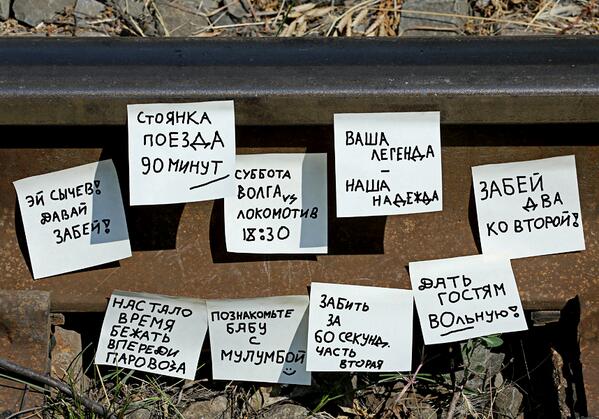 СТОЯНКА
ПОЕЗДА
90 МИНУТ
ЭЙ СЫЧЕВ!
ДАВАЙ
ЗАБЕЙ!
СУББОТА
ВОЛГА vs
ЛОКОМОТИВ
18:30
ВАША
ЛЕГЕНДА
–
НАША
НАДЕЖДА
ЗАБЕЙ
ДВА
КО ВТОРОЙ!
НАСТАЛО
ВРЕМЯ
БЕЖАТЬ
ВПЕРЕДИ
ПАРОВОЗА
ПОЗНАКОМЬТЕ
БАБУ
С
МУЛУМБОЙ
ЗАБИТЬ
ЗА
60 СЕКУНД.
ЧАСТЬ
ВТОРАЯ
ДАТЬ
ГОСТЯМ
ВОЛЬНУЮ!